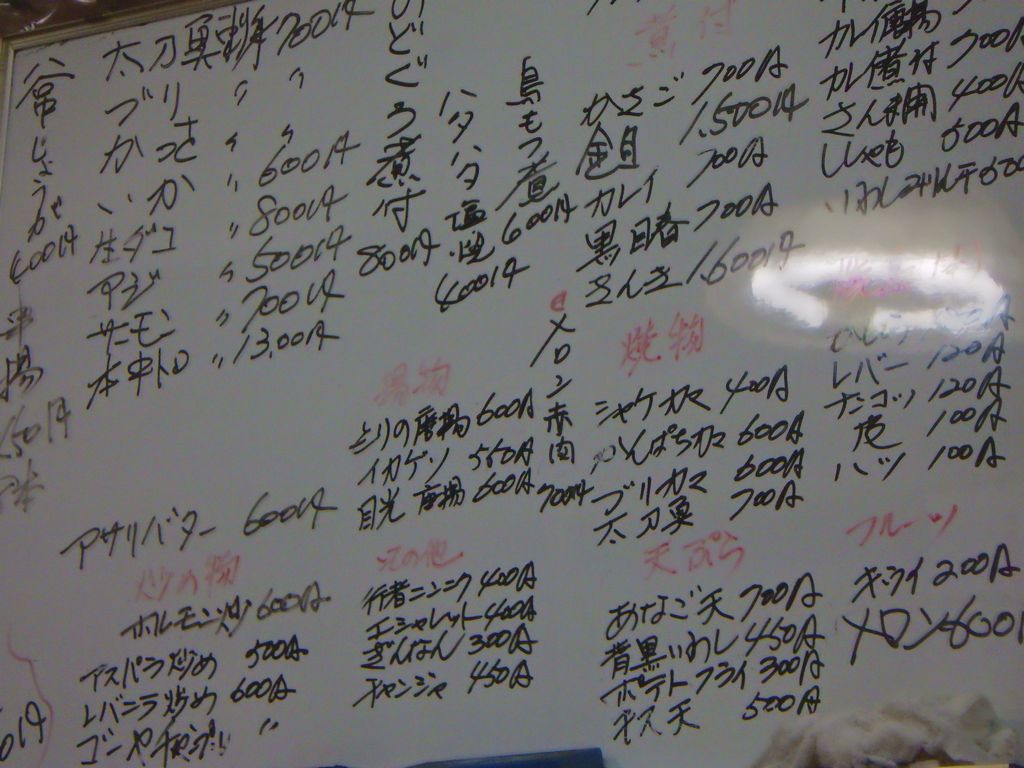 谷中しょうが
400円
太刀魚刺 700円
ブリ 〃 〃
かつを 〃 〃
いか 〃 600円
生ダコ 〃 800円
アジ 〃 500円
サーモン 〃 700円
本中トロ 〃 1,300円
のどぐろ煮付
800円
ハタハタ塩焼
400円
鳥もつ煮
600円
煮付
かさご 700円
金目 1,500円
カレイ 700円
黒目春 700円
きんき 1,600円
カレイ唐揚
カレイ煮付 700円
さんま開 400円
ししゃも 500円
いわしみりん干
揚
150円
アサリバター 600円
揚物
とりの唐揚 600円
イカゲソ 550円
目光唐揚 600円
メロ赤肉
700円
焼物
シャケカマ 400円
かんぱちカマ 600円
ブリカマ 600円
太刀魚 700円
レバー 120円
ナンコツ 120円
皮 100円
ハツ 100円
炒め物
ホルモン炒 600円
アスパラ炒め 500円
レバニラ炒め 600円
ゴーヤチャンプル 〃
その他
行者ニンニク 400円
エシャレット 400円
ぎんなん 300円
チャンジャ 450円
天ぷら
あなご天 700円
背黒いわし 450円
ポテトフライ 300円
キス天 500円
フルーツ
キーウイ 200円
メロン 600円